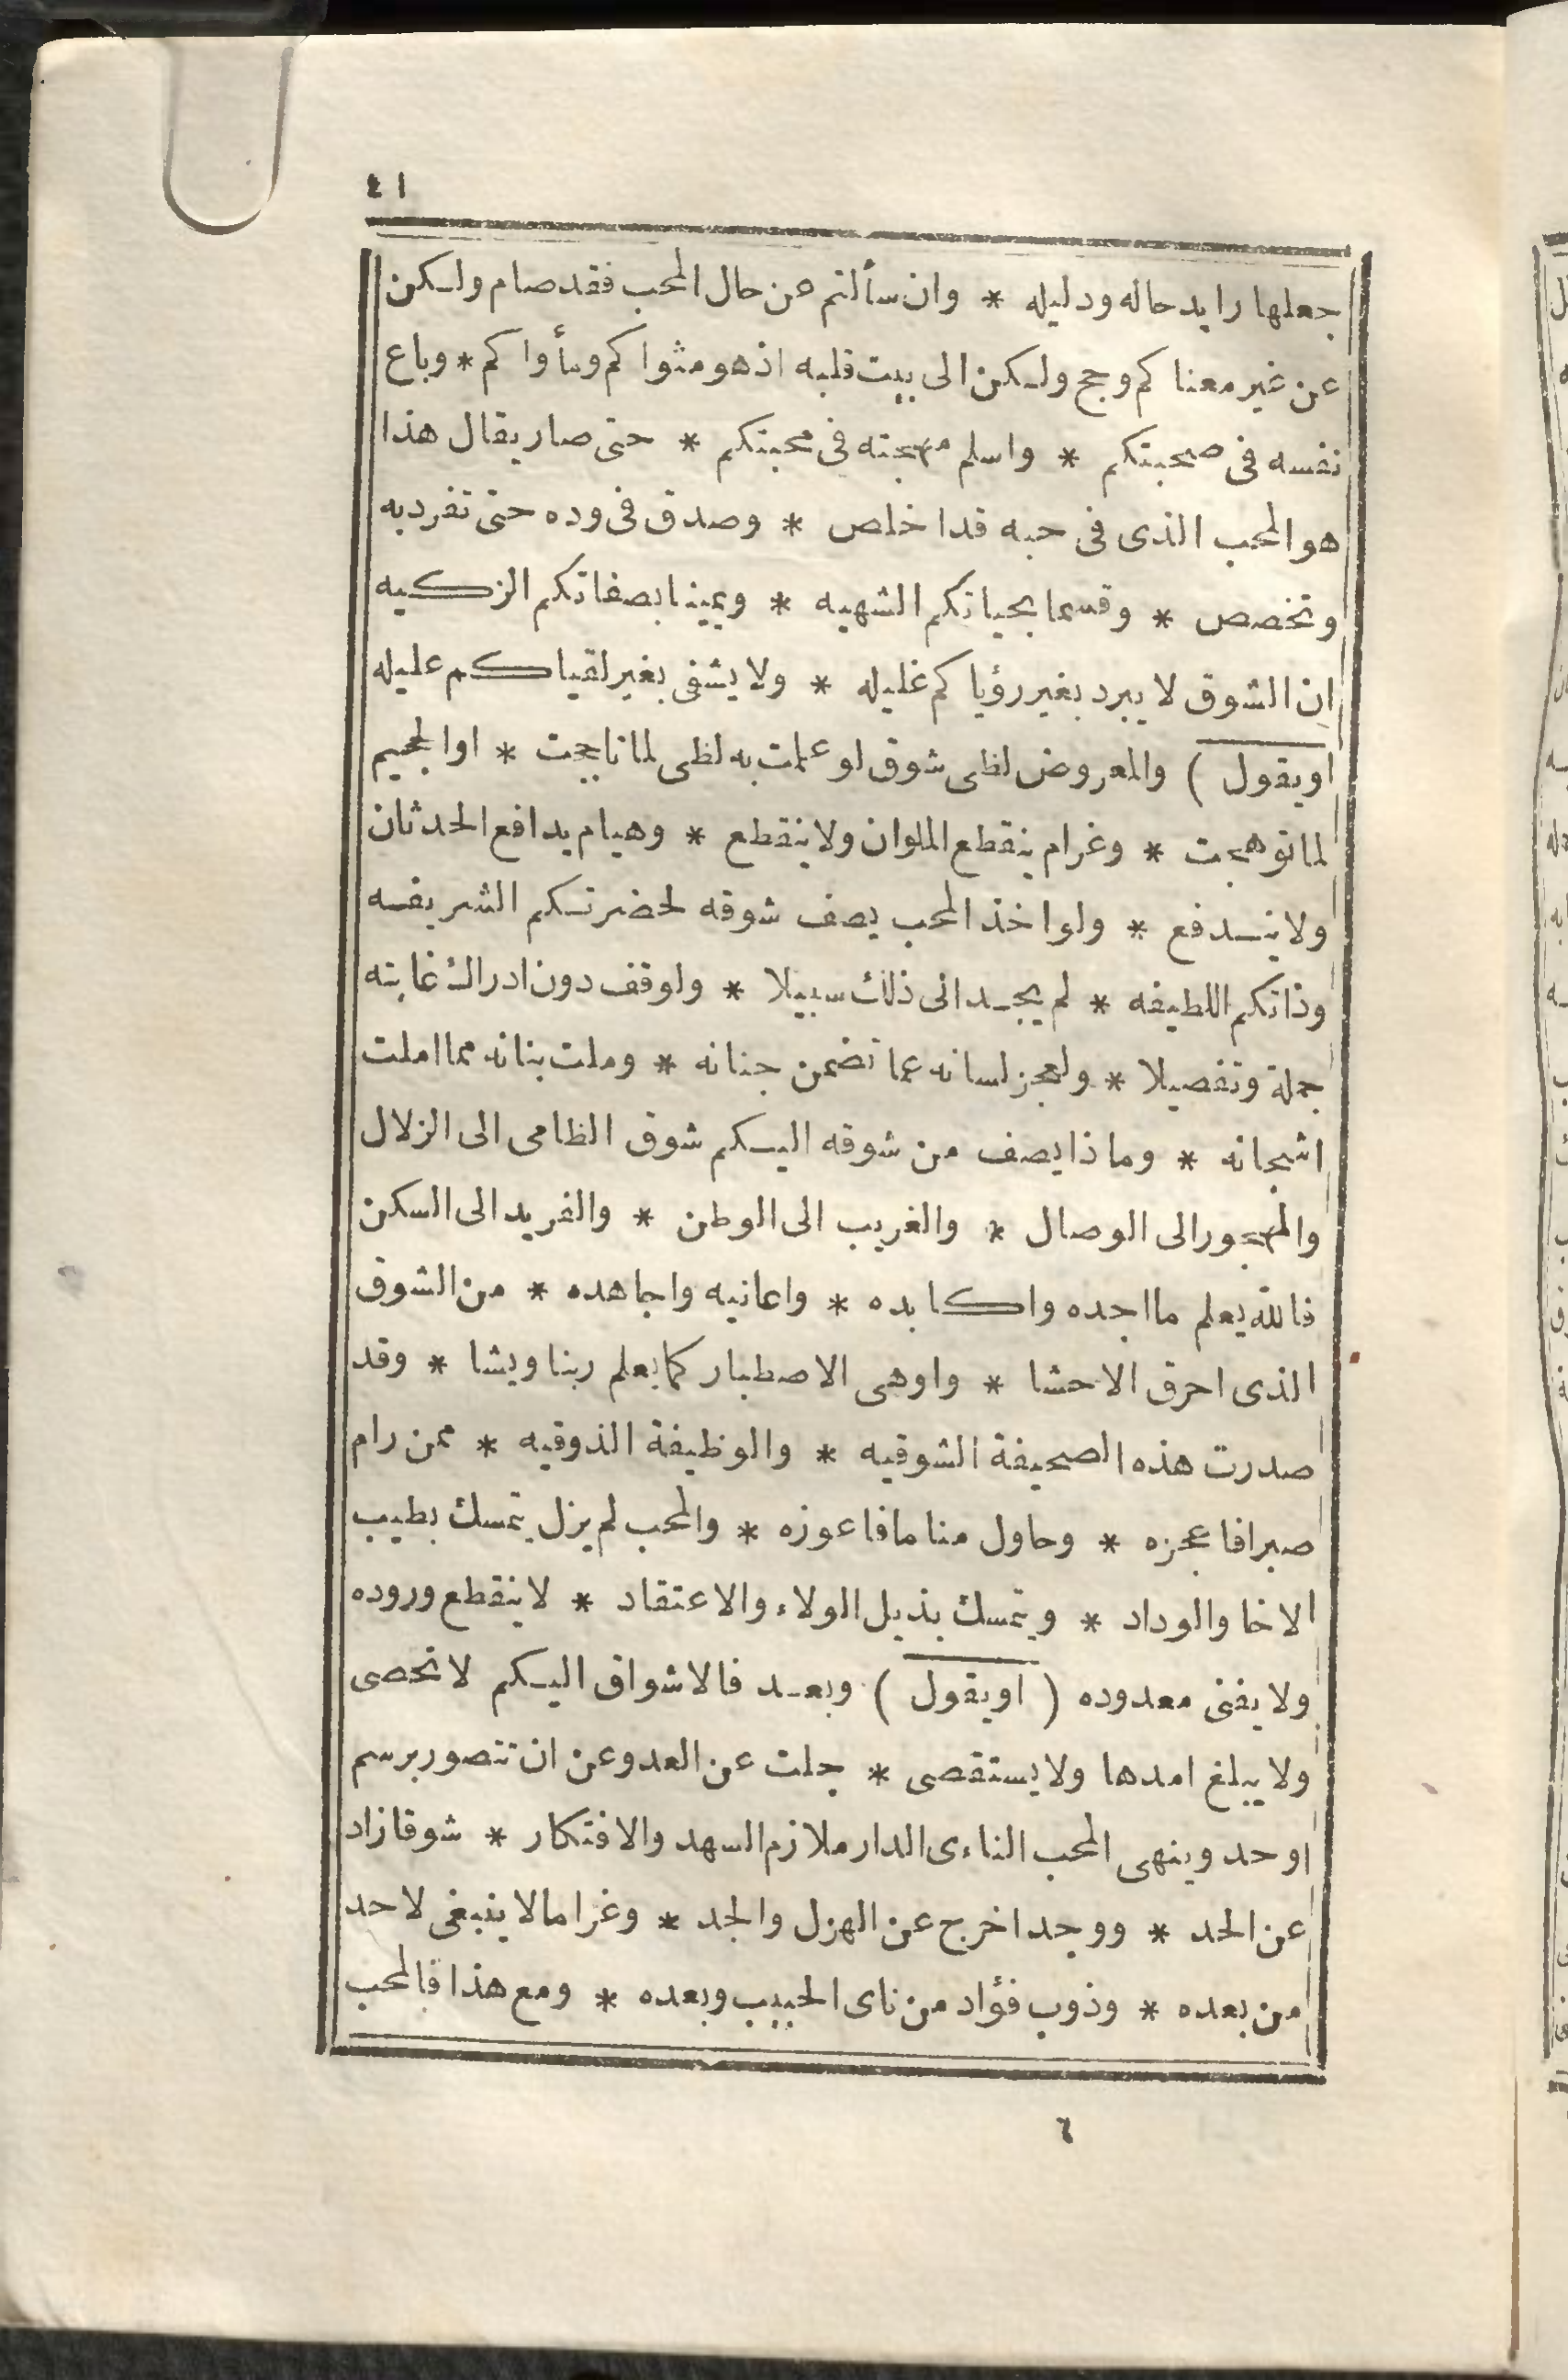 ٤١
جعلها رايد حاله ودليله * وان سألتم عن حال المحب فقد صام ولكن
عن غير معناكم وحج ولكن الى بيت قلبه اذ هو مثواكم ومأواكم * وباع
نفسه فى صحبتكم * واسلم مهجته فى محبتكم * حتى صار يقال هذا
هو المحب الذى فى حبه قد اخلص * وصدق فى وده حتى تفرد به
وتخصص * وقسما بحياتكم الشهيه * ويمينا بصفاتكم الزكيه
ان الشوق لا يبرد بغير رؤياكم غليله * ولا يشفى بغير لقياكم عليله
او يقول ) والمعروض لظى شوق لو علمت به لظى لما تاججت * او الجحيم
لما توهجت * وغرام ينقطع الملوان ولا ينقطع * وهيام يدافع الحدثان
ولا يندفع * ولو اخذ المحب يصف شوقه لحضرتكم الشريفه
وذاتكم اللطيفه * لم يجد الى ذلك سبيلا * ولوقف دون ادراك غايته
جملة وتفصيلا * ولعجز لسانه عما تضمن جنانه * وملت بنانه مما املت
اشجانه * وماذا يصف من شوقه اليكم شوق الظامى الى الزلال
والمهجور الى الوصال * والغريب الى الوطن * والفريد الى السكن
فالله يعلم ما اجده واكابده * واعانيه واجاهده * من الشوق
الذى احرق الاحشا * واوهى الاصطبار كما يعلم ربنا ويشا * وقد
صدرت هذه الصحيفة الشوقيه * والوظيفة الذوقيه * ممن رام
صبرا فاعجزه * وحاول منا ما فاعوزه * والمحب لم يزل يتمسك بطيب
الاخا والوداد * ويتمسك بذيل الولاء والاعتقاد * لا ينقطع وروده
ولا يفنى معدوده ( او يقول ) وبعد فالاشواق اليكم لا تحصى
ولا يبلغ امدها ولا يستقصى * جلت عن العد وعن ان تتصور برسم
او حد وينهى المحب الناءى الدار ملازم السهد والافتكار * شوقا زاد
عن الحد * ووجدا خرج عن الهزل والجد * وغراما لا ينبغى لاحد
من بعده * وذوب فؤاد من ناى الحبيب وبعده * ومع هذا فالمحب
٦